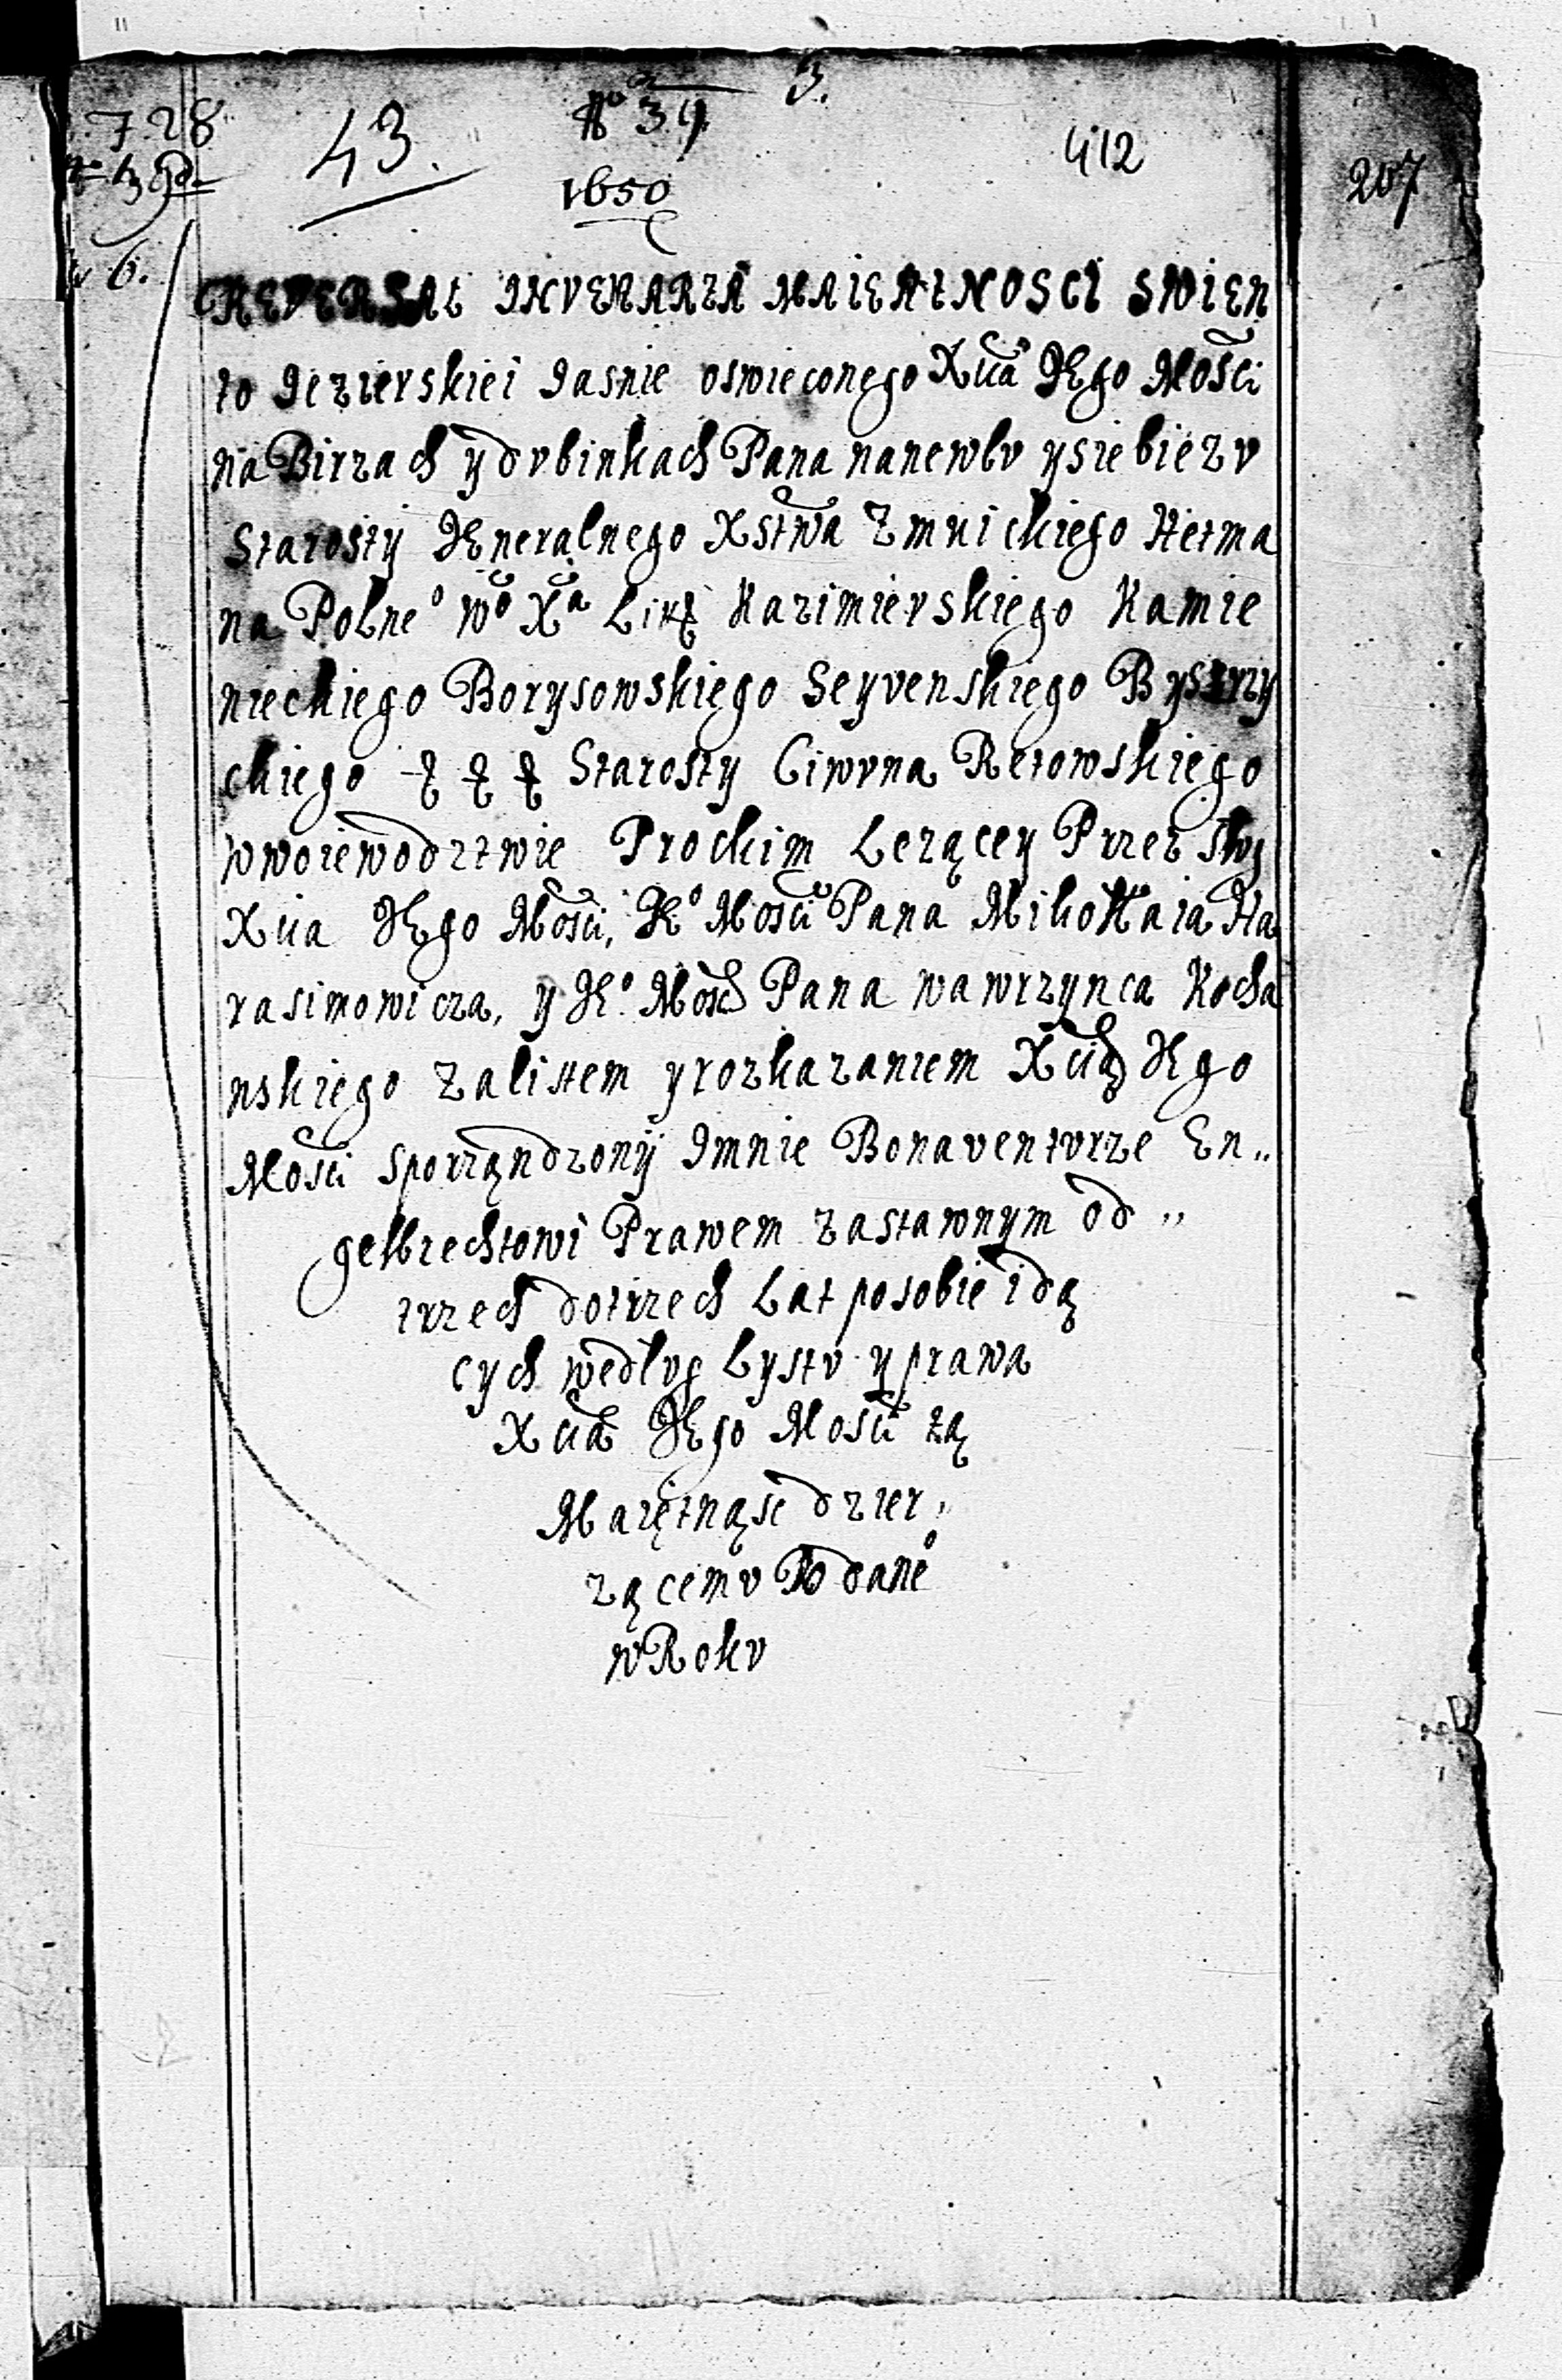 3.
7.28
43.
No 39
412
207
1650
6.
REVERSAŁ INVENARZA MAIENTNOSCI SWIEN
to Iezierskiei Iasnie oswieconego Xcia JEgo Mości
na Birzach y dvbinkach Pana nanewlv ysiebiezv
Starosty JEneralnego Xstwa Zmuickiego Hetma
na Polneº Wº Xª Litº Kazimierskiego Kamie
nieckiego Borysowskiego Seyvenskiego Bystrzy
ckiego Starosty Ciwvna Retowskiego
wwoiewodztwie Trockim Lezący Przez Slvg
Xcia JEgo Mości, JEº Mości Pana Mikołaia Ha
rasimowicza, y JEº Mość Pana wawrzynca Kocha
nskiego zalistem yrozkazaniem Xcia JEgo
Mości sporządzony Imnie Bonaventvrze En„
gelbrechtowi Prawem zastawnym od„
trzech dotrzech Lat posobie idą
cych wedlvg Lystv y prawa
Xcia JEgo Mości tą
Maiętnąsc dzier„
zącemv Podaneº
w Rokv